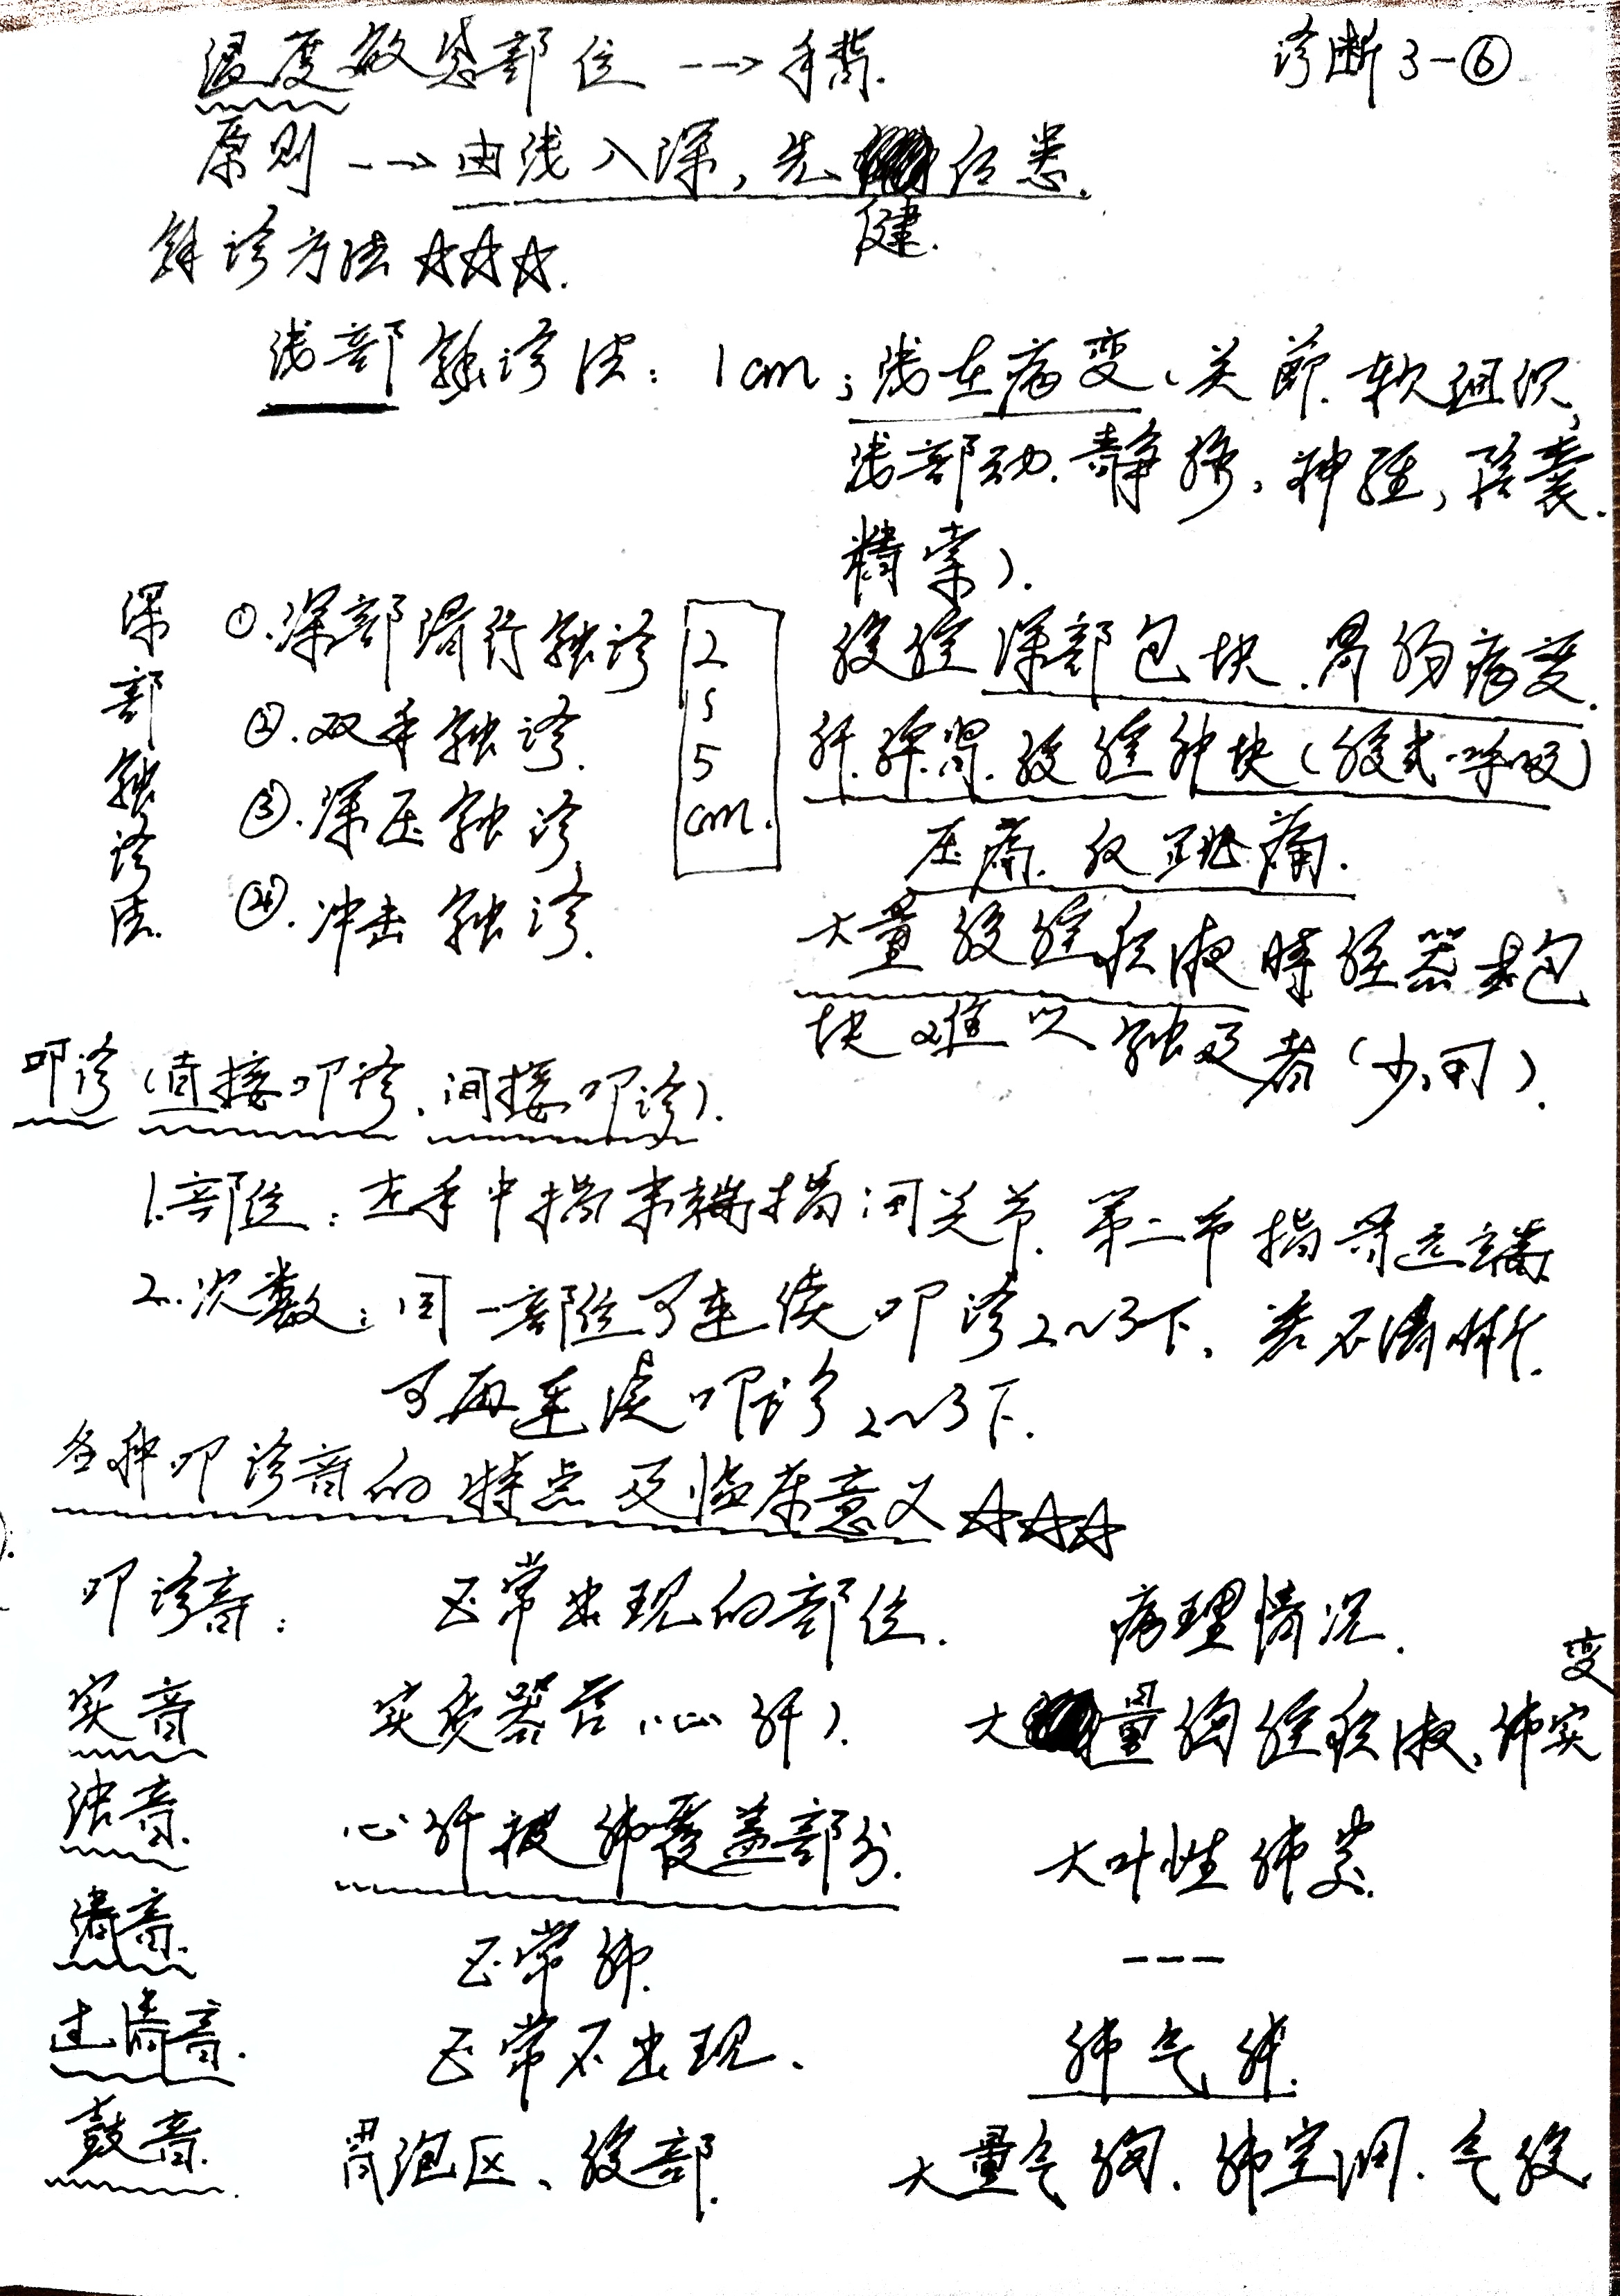 诊断3-⑥
温度敏感部位 --→手背.
原则 --→由浅入深,先健后患.
触诊方法☆☆☆.
浅部触诊法: 1cm;浅在病变(关节.软组织,
浅部动.静脉,神经,阴囊.
精索).
深部触诊法.
2~5cm.
①.深部滑行触诊 腹腔深部包块.胃肠病变.
②.双手触诊. 肝.脾.肾.腹腔肿块(腹式呼吸)
③.深压触诊 压痛.反跳痛.
④.冲击触诊. 大量腹腔积液时脏器或包
块难以触及者(少用).
叩诊(直接叩诊、间接叩诊).
1.部位:左手中指末端指间关节.第二节指骨远端
2.次数:同一部位可连续叩诊2~3下,若不清晰.
可再连续叩诊2~3下.
各种叩诊音的特点及临床意义☆☆☆
叩诊音: 正常出现的部位. 病理情况.
实音 实质器官(心肝). 大量胸腔积液,肺实变
浊音. 心肝被肺覆盖部分. 大叶性肺炎.
清音. 正常肺. ---
过清音. 正常不出现. 肺气肿.
鼓音. 胃泡区、腹部. 大量气胸.肺空洞.气腹